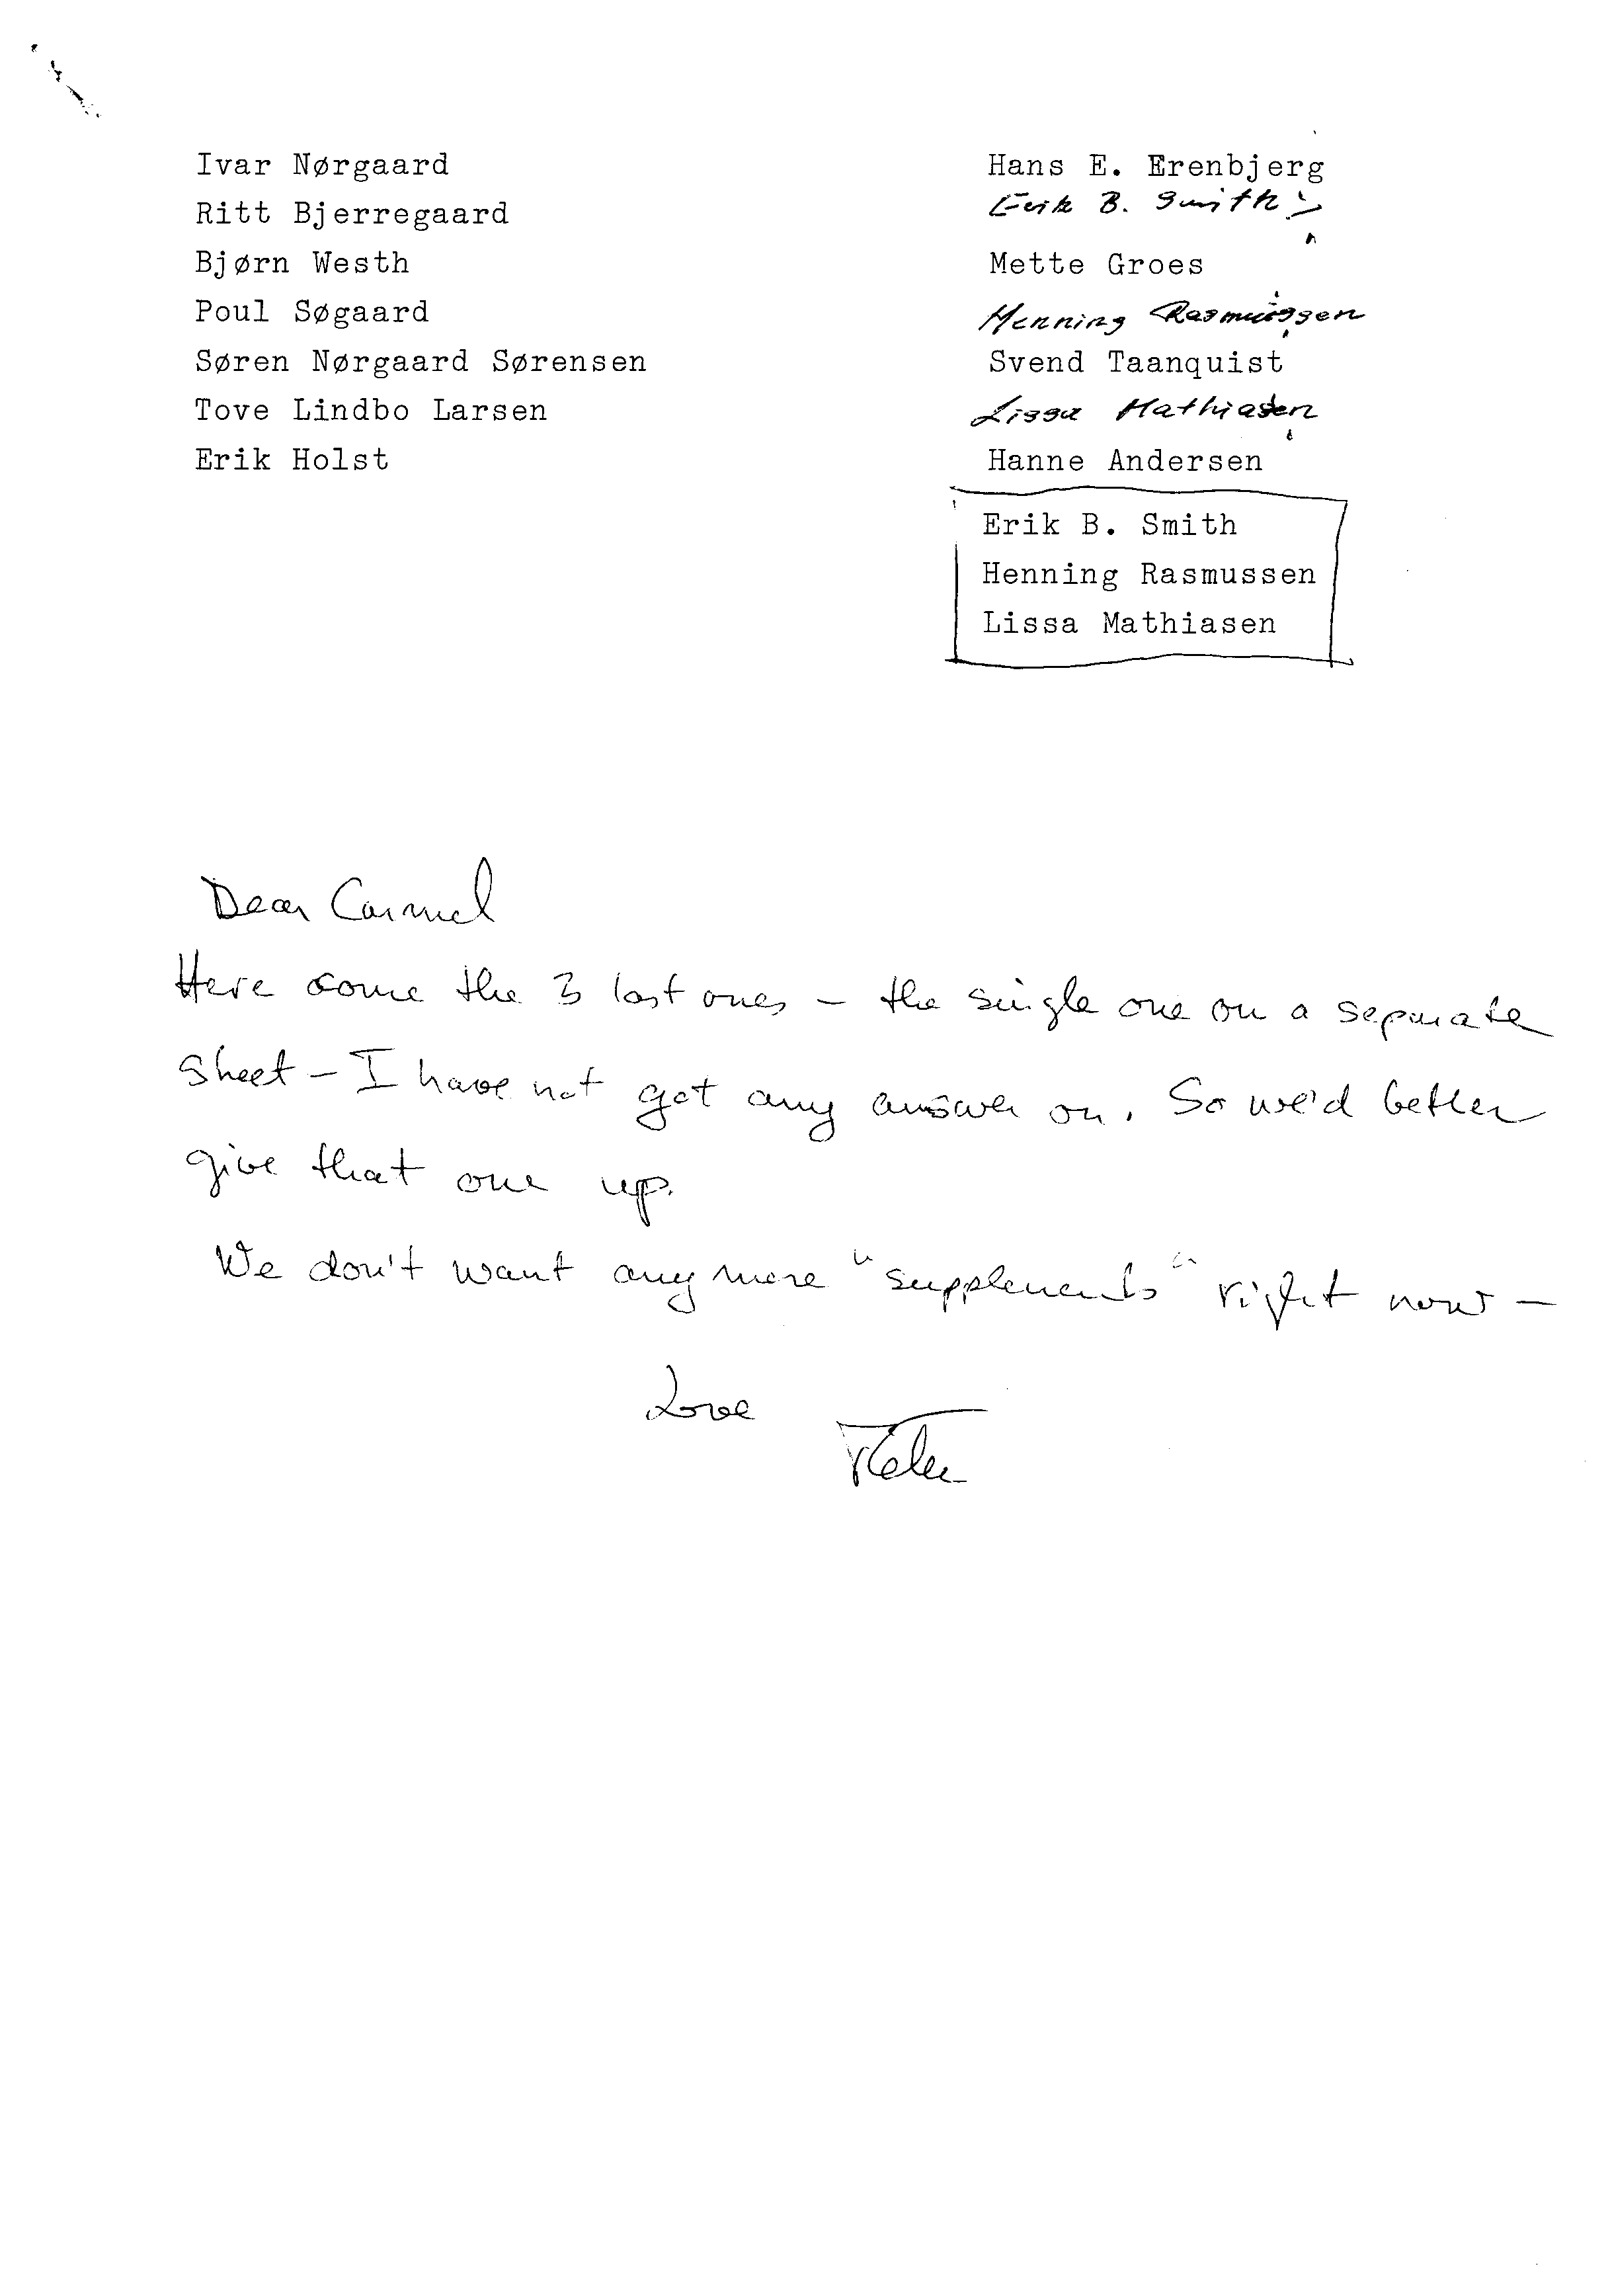 Ivar Nørgaard
Ritt Bjerregaard
Bjørn Westh
Poul Søgaard
Søren Nørgaard Sørensen
Tove Lindbo Larsen
Erik Holst
Hans E. Erenbjerg
Erik B. Smith
Mette Groes
Henning Rasmussen
Svend Taanquist
Lissa Mathiasen
Hanne Andersen
Erik B. Smith
Henning Rasmussen
Lissa Mathiasen
Dear Carmel
Here come the 3 last ones – the single one on a separate
sheet – I have not got any answer on. So we'd better
give that one up.
We don't want any more "supplements" right now –
Love